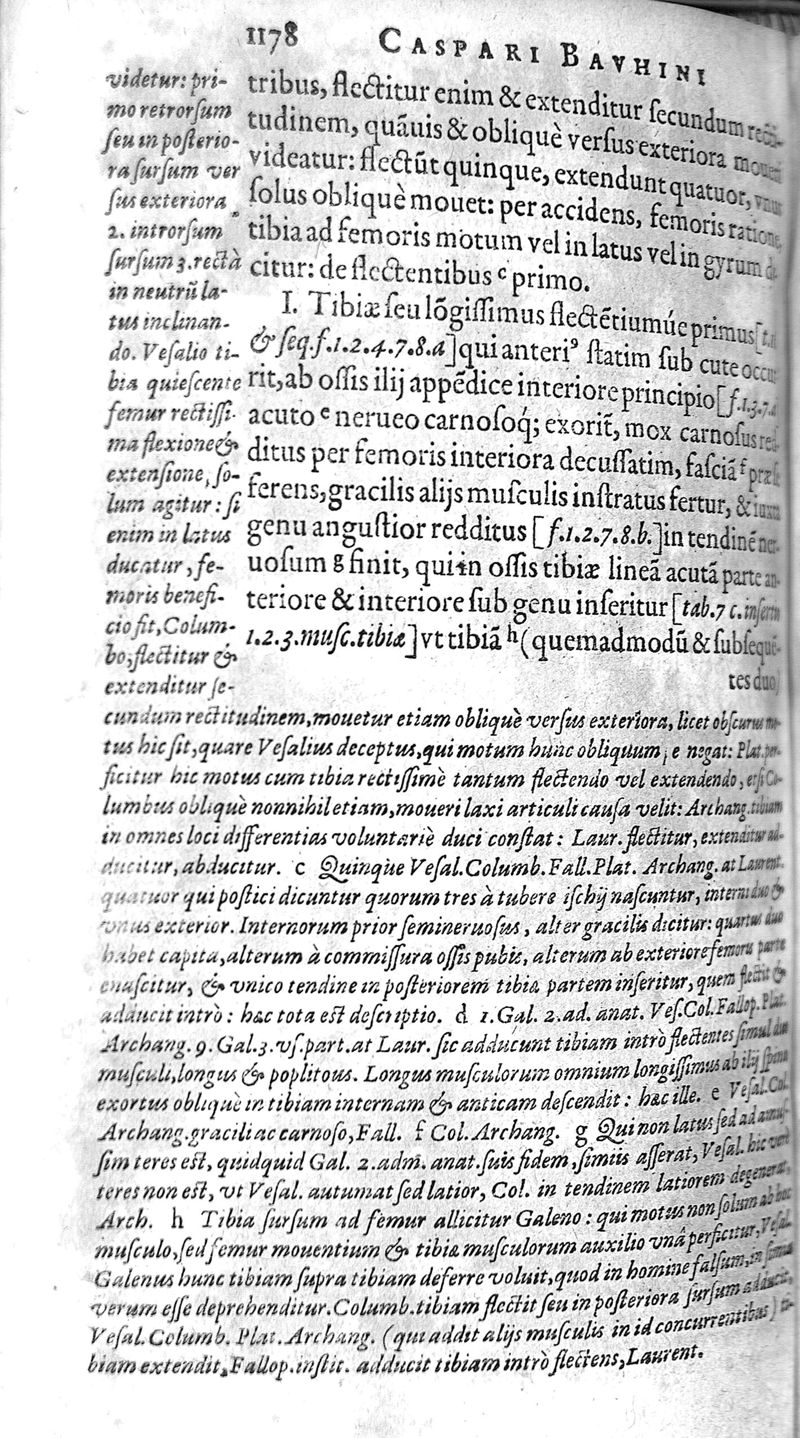 1178 CASPARI BAVHINI
tribus, flectitur enim & extenditur secundum
tudinem, quãuis & obliquè versus exteriora
videatur: flectũt quinque, extendunt quatuor,
solus obliquè mouet: per accidens, femoris ratione
tibia ad femoris motum vel in latus vel in gyrum
citur: de flectentibus c primo.
I. Tibiæ seu lõgissimus flectẽtiumúe primus
& seq. f. 1. 2. 4. 7. 8. a] qui anteriꝰ statim sub cute
rit, ab ossis ilij appẽdice interiore principio [f. 1. 3. 7.
acuto e nerueo carnosoq́; exorit̃, mox carnosus
ditus per femoris interiora decussatim, fasciã f
ferens, gracilis alijs musculis instratus fertur, &
genu angustior redditus [f. 1. 2. 7. 8. b.] in tendinẽ
uosum g finit, qui in ossis tibiæ lineã acutã parte
teriore & interiore sub genu inseritur [tab. 7 c.
1. 2. 3. musc. tibiæ] vt tibiã h (quemadmodũ &
tes duo
videtur: pri-
mo retrorsum
seu in posterio-
ra sursum ver
sus exteriora
2. introrsum
sursum 3. rectà
in neutrũ la-
tus inclinan-
do. Vesalio ti-
bia quiescente
femur rectissi-
ma flexione &
extensione, so-
lum agitur: si
enim in latus
ducatur, fe-
moris benefi-
cio fit, Colum-
bo, flectitur &
extenditur se-
cundum rectitudinem, mouetur etiam obliquè versus exteriora, licet obscurus mo-
tus hic sit, quare Vesalius deceptus, qui motum hunc obliquum negat: Plat. per-
ficitur hic motus cum tibia rectissimè tantum flectendo vel extendendo, etsi Co-
lumbus obliquè nonnihil etiam, moueri laxi articuli causa velit: Archang. tibiam
in omnes loci differentias voluntariè duci constat: Laur. flectitur, extenditur ad-
ducitur, abducitur. c Quinque Vesal. Columb. Fall. Plat. Archang. at Laurent.
quatuor qui postici dicuntur quorum tres à tubere ischij nascuntur, interni duo &
vnus exterior. Internorum prior semineruosus, alter gracilis dicitur: quartus duo
habet capita, alterum à commissura ossis pubis, alterum ab exteriore femoris parte
enascitur, & vnico tendine in posteriorem tibiæ partem inseritur, quem flectit &
adducit intrò: hæc tota est descriptio. d 1. Gal. 2. ad. anat. Ves. Col. Fallop. Plat.
Archang. 9. Gal. 3. vs. part. at Laur. sic adducunt tibiam intrò flectentes simul duo
musculi, longus & poplitous. Longus musculorum omnium longissimus ab ilij spina
exortus obliquè in tibiam internam & anticam descendit: hæc ille. e Vesal. Col.
Archang. gracili ac carnoso, Fall. f Col. Archang. g Qui non latus sed ad amus-
sim teres est, quidquid Gal. 2. adm. anat. suis fidem, simiis asserat, Vesal. hic verò
teres non est, vt Vesal. autumat sed latior, Col. in tendinem latiorem degenerat,
Arch. h Tibia sursum ad femur allicitur Galeno: qui motus non solum ab hoc
musculo, sed femur mouentium & tibiæ musculorum auxilio vnâ perficitur, Vesal.
Galenus hunc tibiam supra tibiam deferre voluit, quod in homine falsum, in simia
verum esse deprehenditur. Columb. tibiam flectit seu in posteriora sursum adducit,
Vesal. Columb. Plat. Archang. (qui addit alijs musculis in id concurrentibus) ti-
biam extendit, Fallop. instit. adducit tibiam intrò flectens, Laurent.